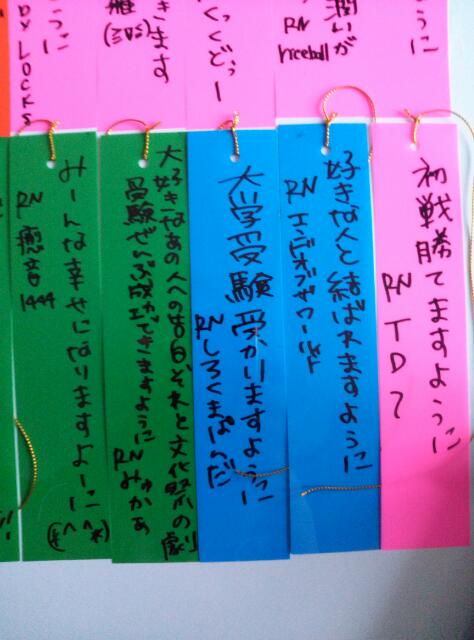 うに
DY LOCKS
きます
くっくどぅー
潤いが
RN
riceball
ように
初戦勝てますように
RN TD7
好きな人と結ばれますように
RN エンドオブザワールド
大学受験受かりますように
RN しろくまぱんだ
大好きなあの人への告白それと文化祭の劇
受験ぜんぶ成功できますように
RN みゅかぁ
みーんな幸せになりますよーに(*^^*)
RN 癒音1444